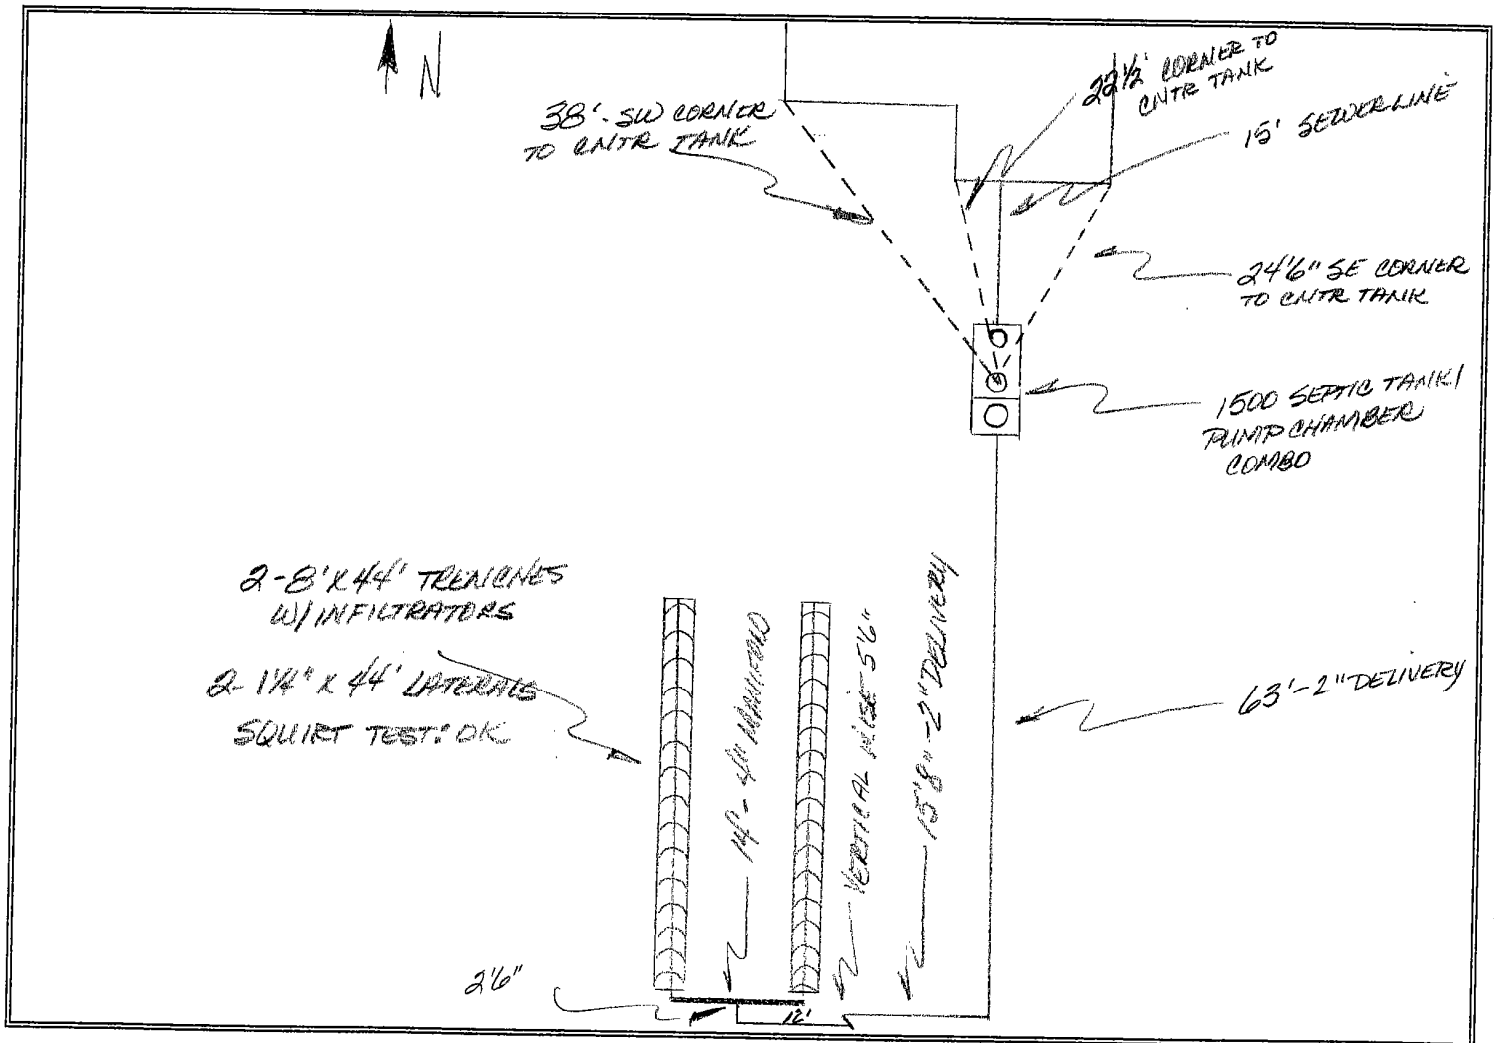 N
38'- SW CORNER
TO CNTR TANK
22½' CORNER TO
CNTR TANK
15' SEWERLINE
24'6" SE CORNER
TO CNTR TANK
1500 SEPTIC TANK/
PUMP CHAMBER
COMBO
2-8'X44' TRENCHES
W/ INFILTRATORS
2-1¼" X 44' LATERALS
SQUIRT TEST: OK
14'-4" MANIFOLD
VERTICAL RISE 5'6"
15'8"-2" DELIVERY
63'-2" DELIVERY
2'6"
12'